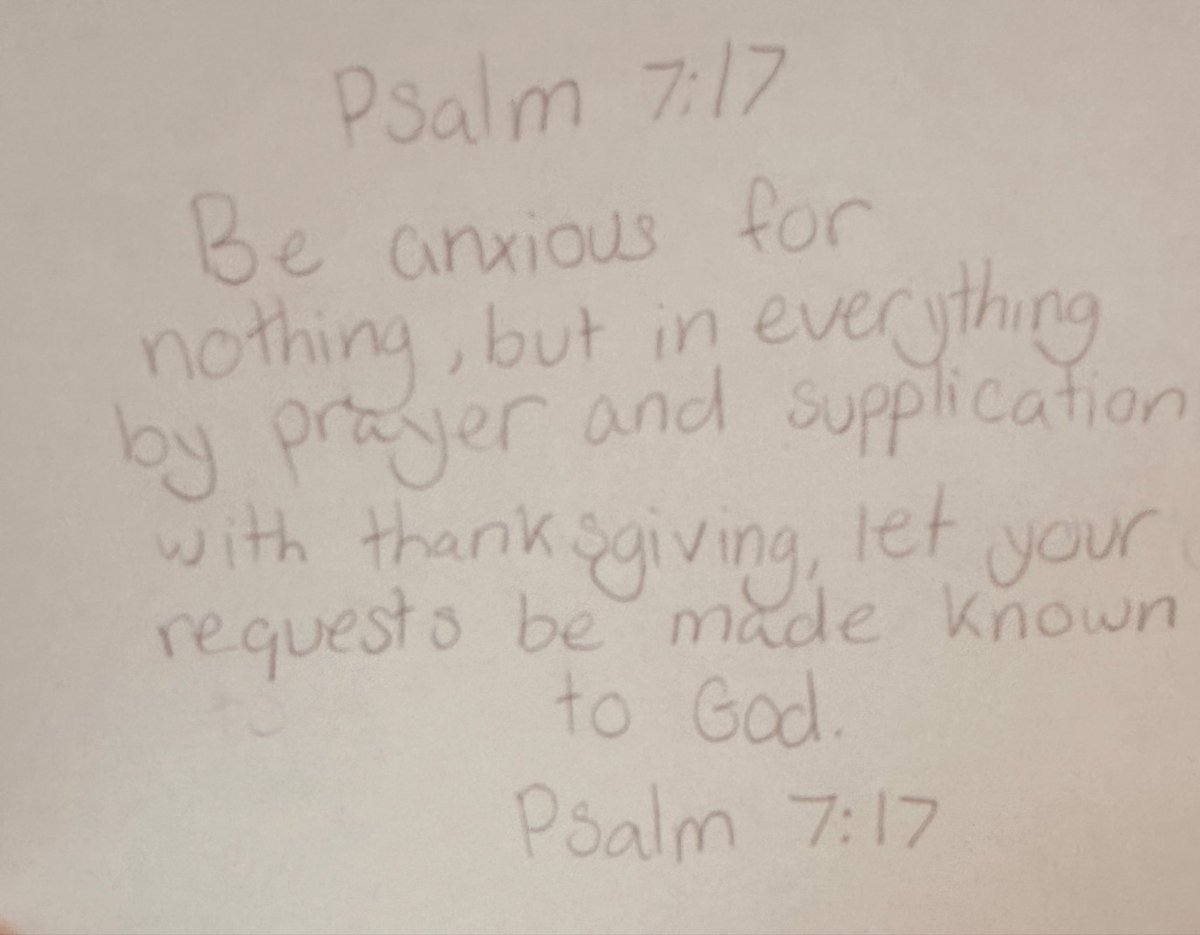 Psalm 7:17
Be anxious for
nothing, but in everything
by prayer and supplication
with thanksgiving, let your
requests be made known
to God.
Psalm 7:17